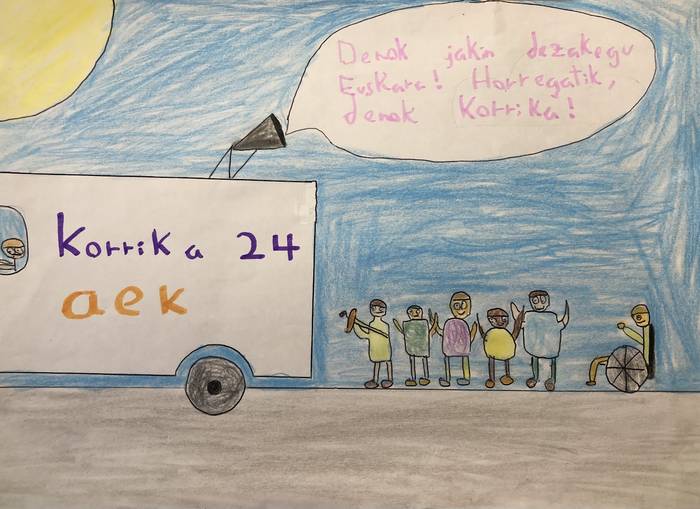 Denok jakin dezakegu
Euskara! Horregatik,
denok Korrika!
Korrika 24
aek